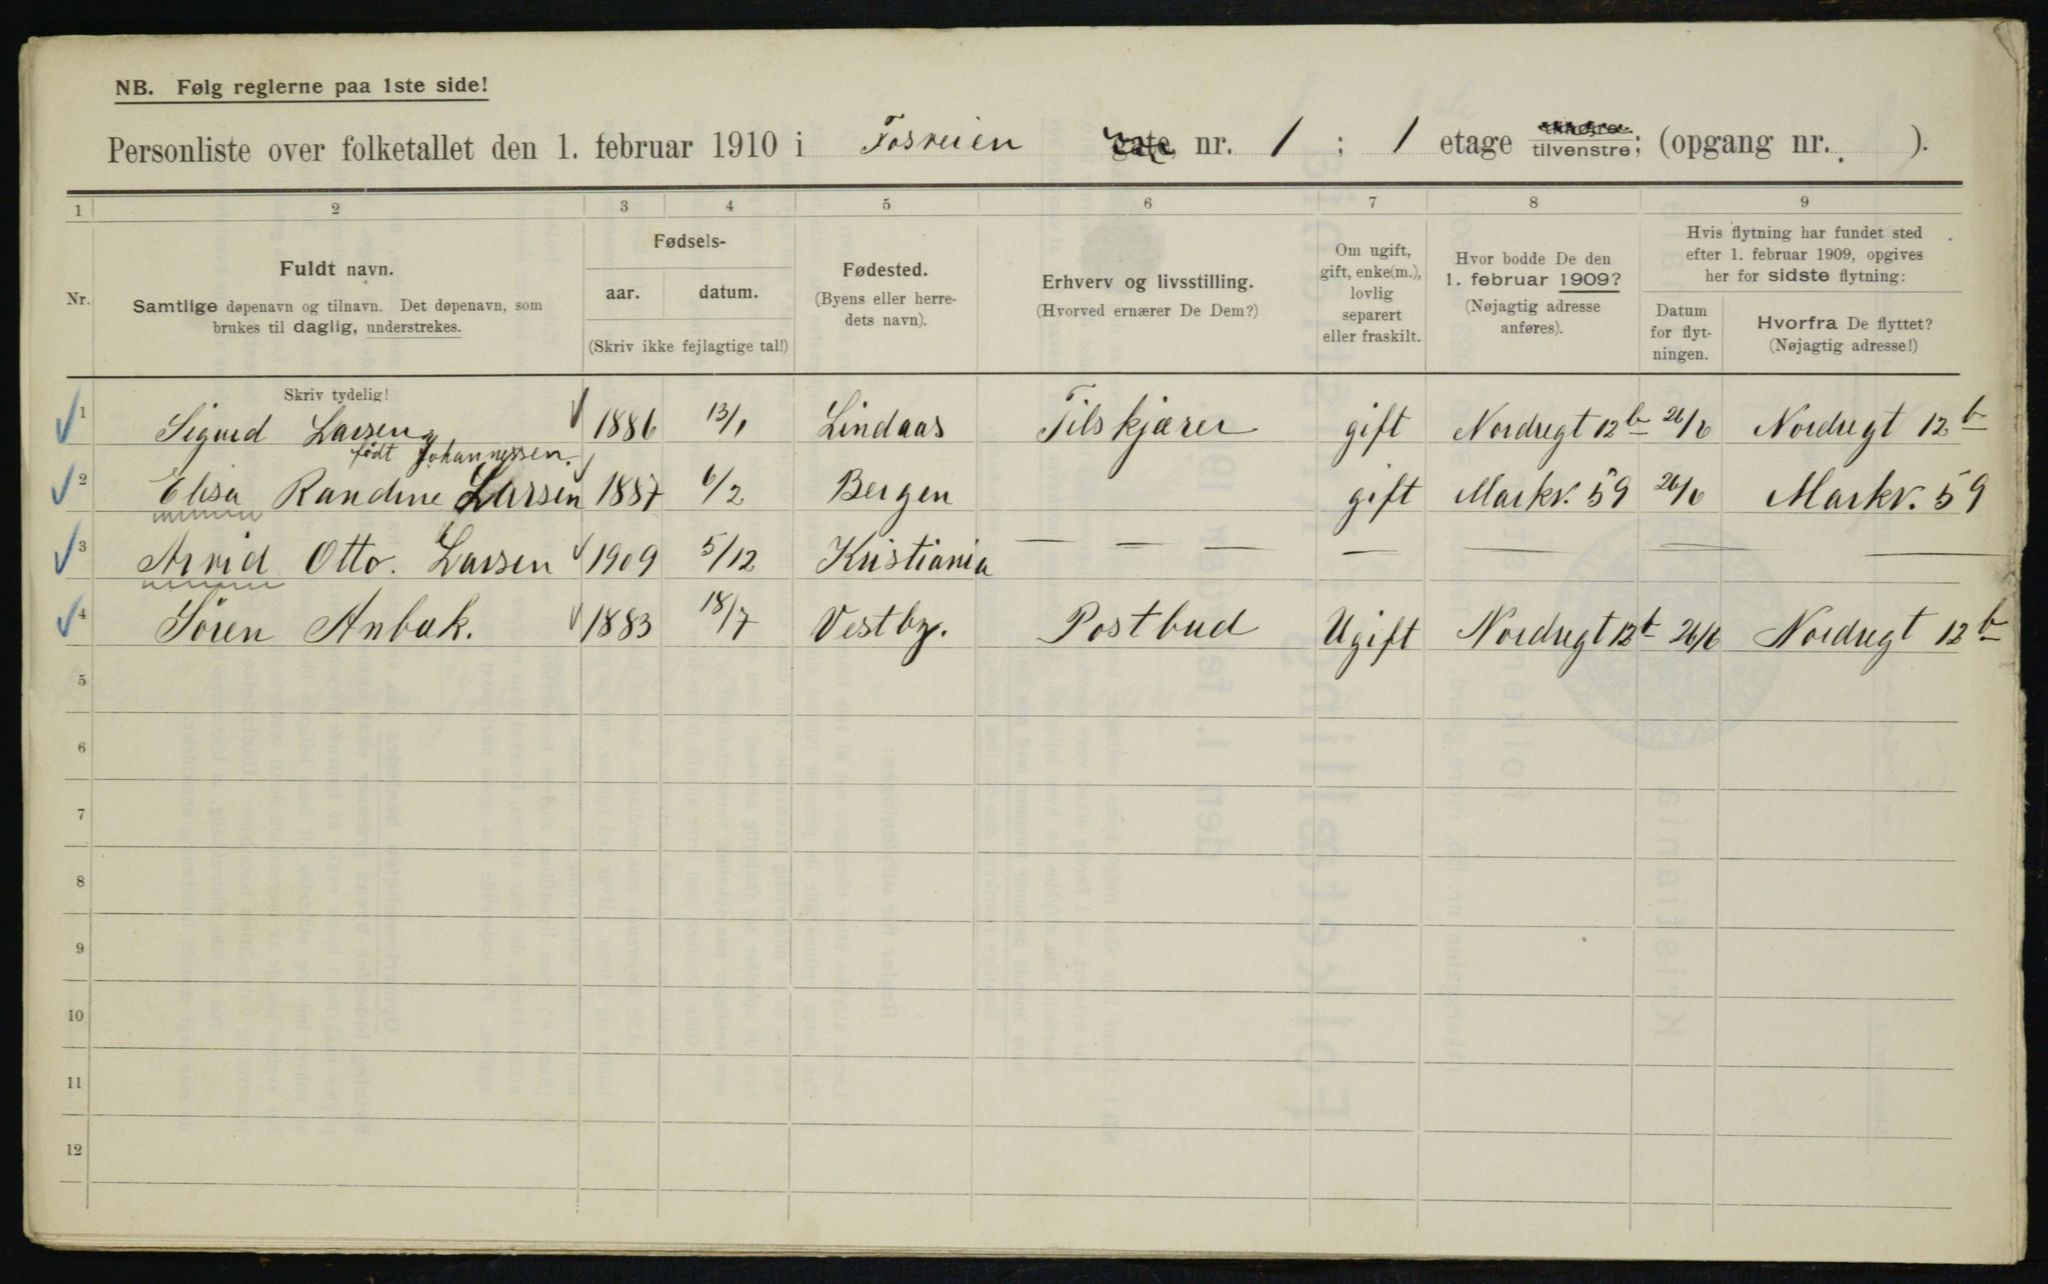 NB. Følg reglerne paa 1ste side!
Personliste over folketallet den 1. februar 1910 i Fosveien gate nr. 1 ; 1 etage tilhøire tilvenstre; (opgang nr. ).
1 2 3 4 5 6 7 8 9
Nr.
Fuldt navn.
Samtlige døpenavn og tilnavn. Det døpenavn, som
brukes til daglig, understrekes.
Skriv tydelig!
Fødsels-
aar. datum.
(Skriv ikke fejlagtige tal!)
Fødested.
(Byens eller herre-
dets navn).
Erhverv og livsstilling.
(Hvorved ernærer De Dem?)
Om ugift,
gift, enke(m.),
lovlig
separert
eller fraskilt.
Hvor bodde De den
1. februar 1909?
(Nøjagtig adresse
anføres).
Hvis flytning har fundet sted
efter 1. februar 1909, opgives
her for sidste flytning:
Datum
for flyt-
ningen.
Hvorfra De flyttet?
(Nøjagtig adresse!)
1 Sigurd Larsen 1886 13/1 Lindaas Tilskjærer gift Nordregt 12b 26/6 Nordregt 12b
født Johannessen.
2 Elisa Randine Larsen 1887 6/2 Bergen gift Markv. 59 26/6 Markv. 59
3 Arvid Otto. Larsen 1909 5/12 Kristiania — — — — — — —
4 Sören Anbæk. 1883 18/7 Vestby. Postbud Ugift Nordregt 12b 26/6 Nordregt 12b
5
6
7
8
9
10
11
12